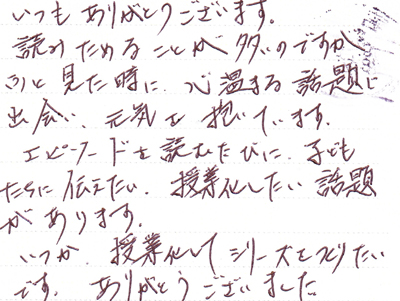 いつも ありがとうございます.
読みためることが 多いのですが
ふと見た時に、心温まる 話題に
出会い、元気を 抱いています.
エピソードを読むたびに、子ども
たちに伝えたい、授業化したい 話題
があります.
いつか、授業化して シリーズをつくりたい
です. ありがとうございました